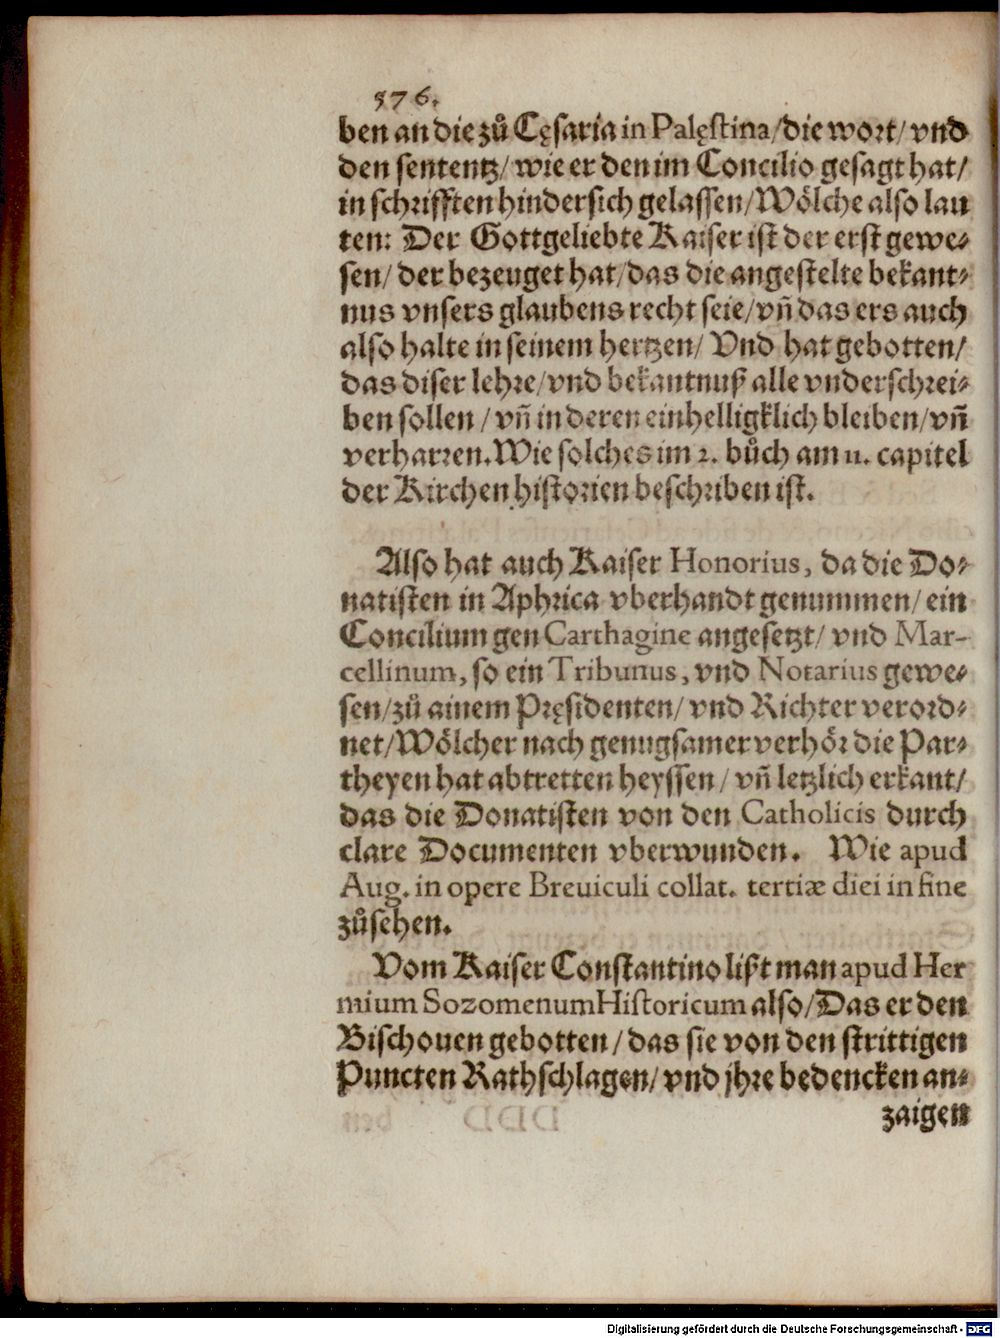 576.
ben an die zů Cęsaria in Palęstina/die wort/ vnd
den sententz/ wie er den im Concilio gesagt hat/
in schrifften hindersich gelassen/Wölche also lau
ten: Der Gottgeliebte Kaiser ist der erst gewe⸗
sen/ der bezeuget hat/das die angestelte bekant⸗
nus vnsers glaubens recht seie/vñ das ers auch
also halte in seinem hertzen/ Vnd hat gebotten/
das diser lehre/vnd bekantnuß alle vnderschrei⸗
ben sollen / vñ in deren einhelligklich bleiben/vñ
verharren.Wie solches im 2. bůch am 11. capitel
der Kirchen historien beschriben ist.
Also hat auch Kaiser Honorius, da die Do⸗
natisten in Aphrica vberhandt genummen/ ein
Concilium gen Carthagine angesetzt/ vnd Mar-
cellinum, so ein Tribunus, vnd Notarius gewe⸗
sen/zů ainem Pręsidenten/ vnd Richter verord⸗
net/Wölcher nach genugsamer verhör die Par⸗
theyen hat abtretten heyssen / vñ letzlich erkant/
das die Donatisten von den Catholicis durch
clare Documenten vberwunden. Wie apud
Aug. in opere Breuiculi collat. tertiæ diei in fine
zůsehen.
Vom Kaiser Constantino lißt man apud Her
mium Sozomenum Historicum also/Das er den
Bischouen gebotten/das sie von den strittigen
Puncten Rathschlagen/ vnd jhre bedencken an⸗
zaigen
Digitalisierung gefördert durch die Deutsche Forschungsgemeinschaft - DFG